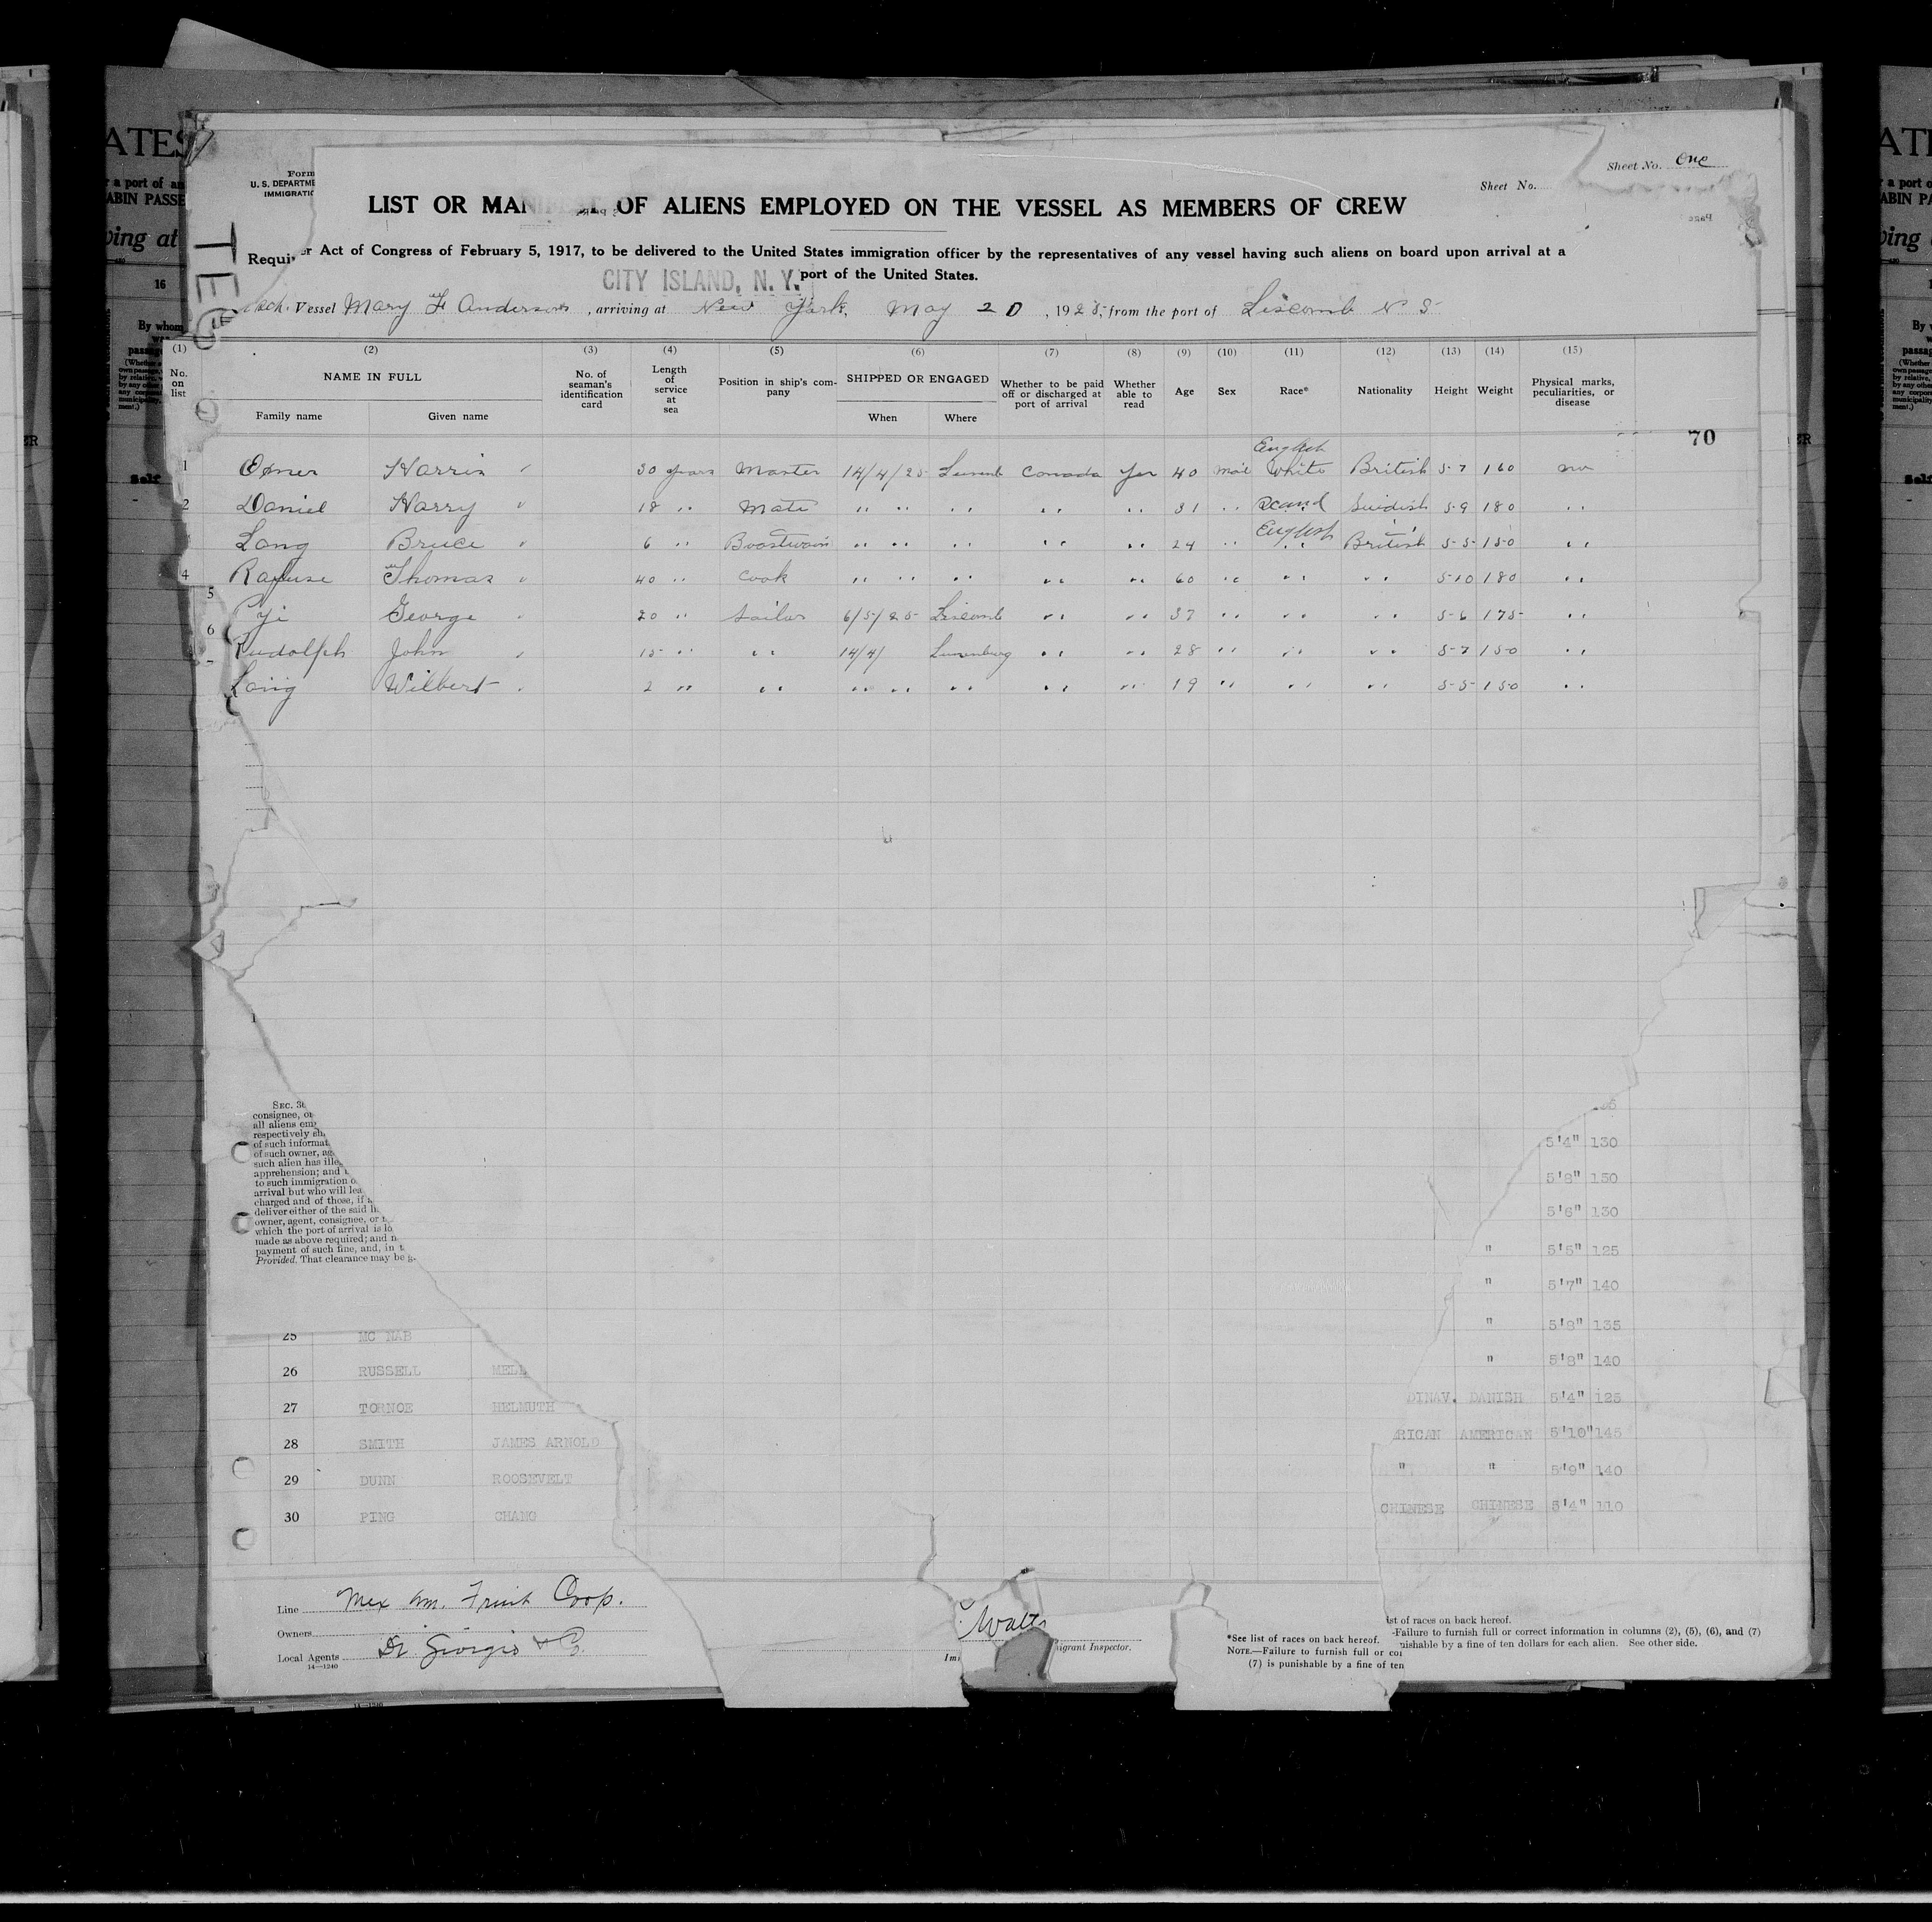 Sheet No. One
Sheet No.
Form
U. S. DEPARTME
IMMIGRATIO
LIST OR MAN OF ALIENS EMPLOYED ON THE VESSEL AS MEMBERS OF CREW
Requir er Act of Congress of February 5, 1917, to be delivered to the United States immigration officer by the representatives of any vessel having such aliens on board upon arrival at a
port of the United States.
CITY ISLAND, N. Y.
Vessel Mary F Anderson, arriving at New York, May 20, 1925, from the port of Liscomb N S
(1) (2) (3) (4) (5) (6) (7) (8) (9) (10) (11) (12) (13) (14) (15)
No. on list NAME IN FULL Family name Given name No. of seaman's identification card Length of service at sea Position in ship's company SHIPPED OR ENGAGED When Where Whether to be paid off or discharged at port of arrival Whether able to read Age Sex Race* Nationality Height Weight Physical marks, peculiarities, or disease
70
English
1 Oxner Harris 30 years Master 14/4/25 Lunenb Canada Yes 40 Male White British 5-7 160 no
2 Daniel Harry 18 " Mate " " " " " 31 " Scand Swedish 5-9 180 "
English
Long Bruce 6 " Boastwain " " " " " 24 " " British 5-5 150 "
4 Rafuse Thomas 40 " Cook " " " " " 60 " " " 5-10 180 "
5
Pji George 20 " Sailor 6/5/25 Liscomb " " 37 " " " 5-6 175 "
6
Rudolph John 15 " " 14/4/ Lunenburg " " 28 " " " 5-7 150 "
Long Wilbert 2 " " " " " " " 19 " " " 5-5 150 "
SEC. 36
consignee, or
all aliens emp
respectively sh
of such informat
of such owner, ag
such alien has ille
apprehension; and
to such immigration o
arrival but who will lea
charged and of those, if
deliver either of the said li
owner, agent, consignee, or
which the port of arrival is lo
made as above required; and n
payment of such fine, and, in t
Provided. That clearance may be g
5'4" 130
5'8" 150
5'6" 130
" 5'5" 125
" 5'7" 140
" 5'8" 135
25 MC NAB
" 5'8" 140
26 RUSSELL MELL
DINAV. DANISH 5'4" 125
27 TORNOE HELMUTH
RICAN AMERICAN 5'10" 145
28 SMITH JAMES ARNOLD
" " 5'9" 140
29 DUNN ROOSEVELT
CHINESE CHINESE 5'4" 110
30 PING CHANG
Line Mex Am. Fruit Corp.
Owners
Local Agents Di Giorgio & Co
14—1240
Walte
igrant Inspector.
Imi
*See list of races on back hereof.
NOTE.—Failure to furnish full or cor
(7) is punishable by a fine of ten
ist of races on back hereof.
-Failure to furnish full or correct information in columns (2), (5), (6), and (7)
nishable by a fine of ten dollars for each alien. See other side.
14—1240
ATES
r a port of an
ABIN PASSE
ving at
16
By whom